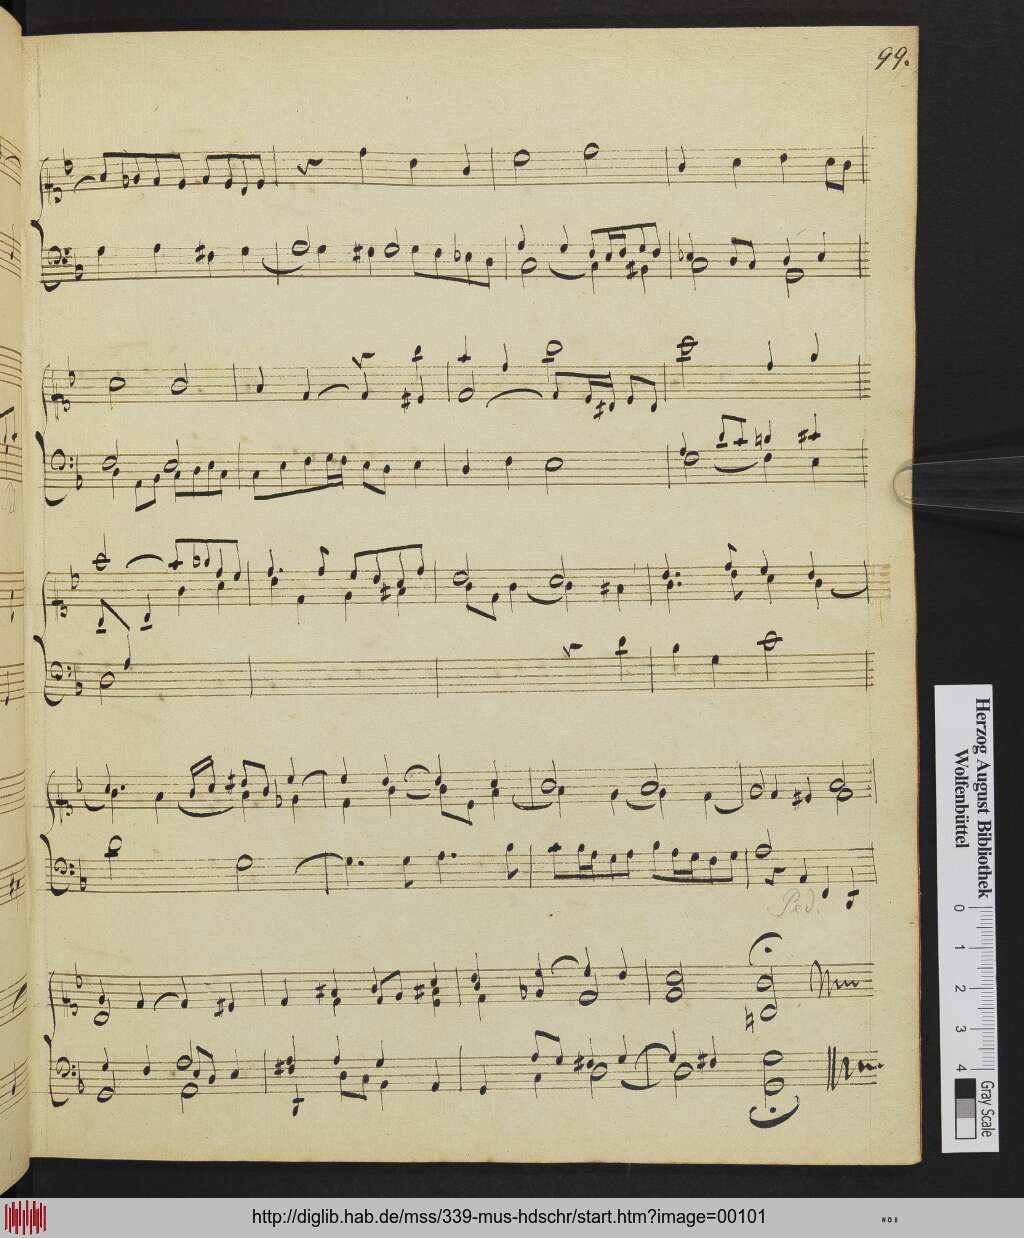 99.
Ped.
Herzog August Bibliothek
Wolfenbüttel
0 1 2 3 4
Gray Scale
http://diglib.hab.de/mss/339-mus-hdschr/start.htm?image=00101
WDB